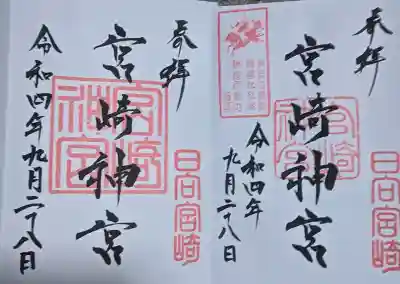 奉拝
宮崎神宮
令和四年九月二十八日
宮崎
神宮
日石宮崎
奉拝
宮崎神宮
令和四年
九月二十八日
宮崎
神宮
日石宮崎